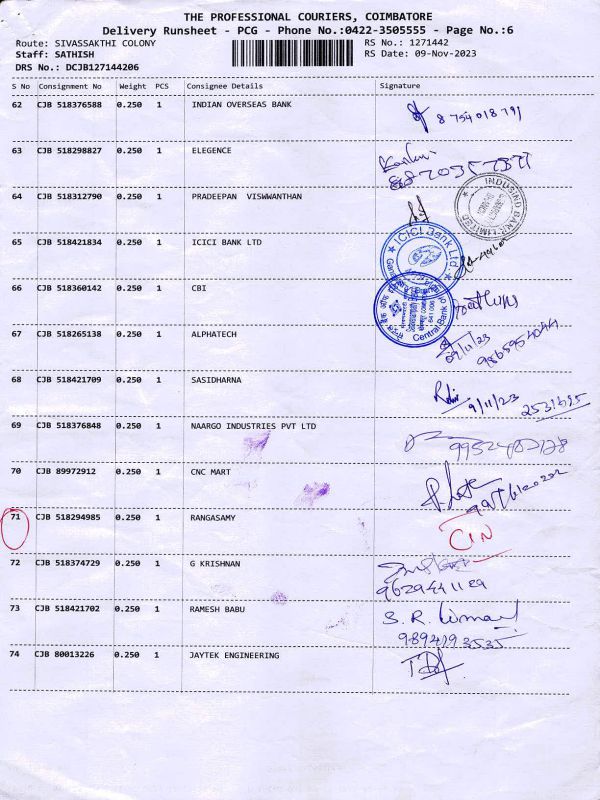 THE PROFESSIONAL COURIERS, COIMBATORE
Delivery Runsheet - PCG - Phone No.:0422-3505555 - Page No.:6
Route: SIVASSAKTHI COLONY RS No.: 1271442
Staff: SATHISH RS Date: 09-Nov-2023
DRS No.: DCJB127144206
S No Consignment No Weight PCS Consignee Details Signature
62 CJB 518376588 0.250 1 INDIAN OVERSEAS BANK
63 CJB 518298827 0.250 1 ELEGENCE
64 CJB 518312790 0.250 1 PRADEEPAN VISWWANTHAN
INDUSIND BANK LIMITED
65 CJB 518421834 0.250 1 ICICI BANK LTD
ICICI Bank Ltd.
66 CJB 518360142 0.250 1 CBI
Central Bank of
67 CJB 518265138 0.250 1 ALPHATECH
09/11/23
68 CJB 518421709 0.250 1 SASIDHARNA
9/11/23
69 CJB 518376848 0.250 1 NAARGO INDUSTRIES PVT LTD
70 CJB 89972912 0.250 1 CNC MART
71 CJB 518294985 0.250 1 RANGASAMY CIN
72 CJB 518374729 0.250 1 G KRISHNAN
9629441189
73 CJB 518421702 0.250 1 RAMESH BABU S. R.
9894193535
74 CJB 80013226 0.250 1 JAYTEK ENGINEERING